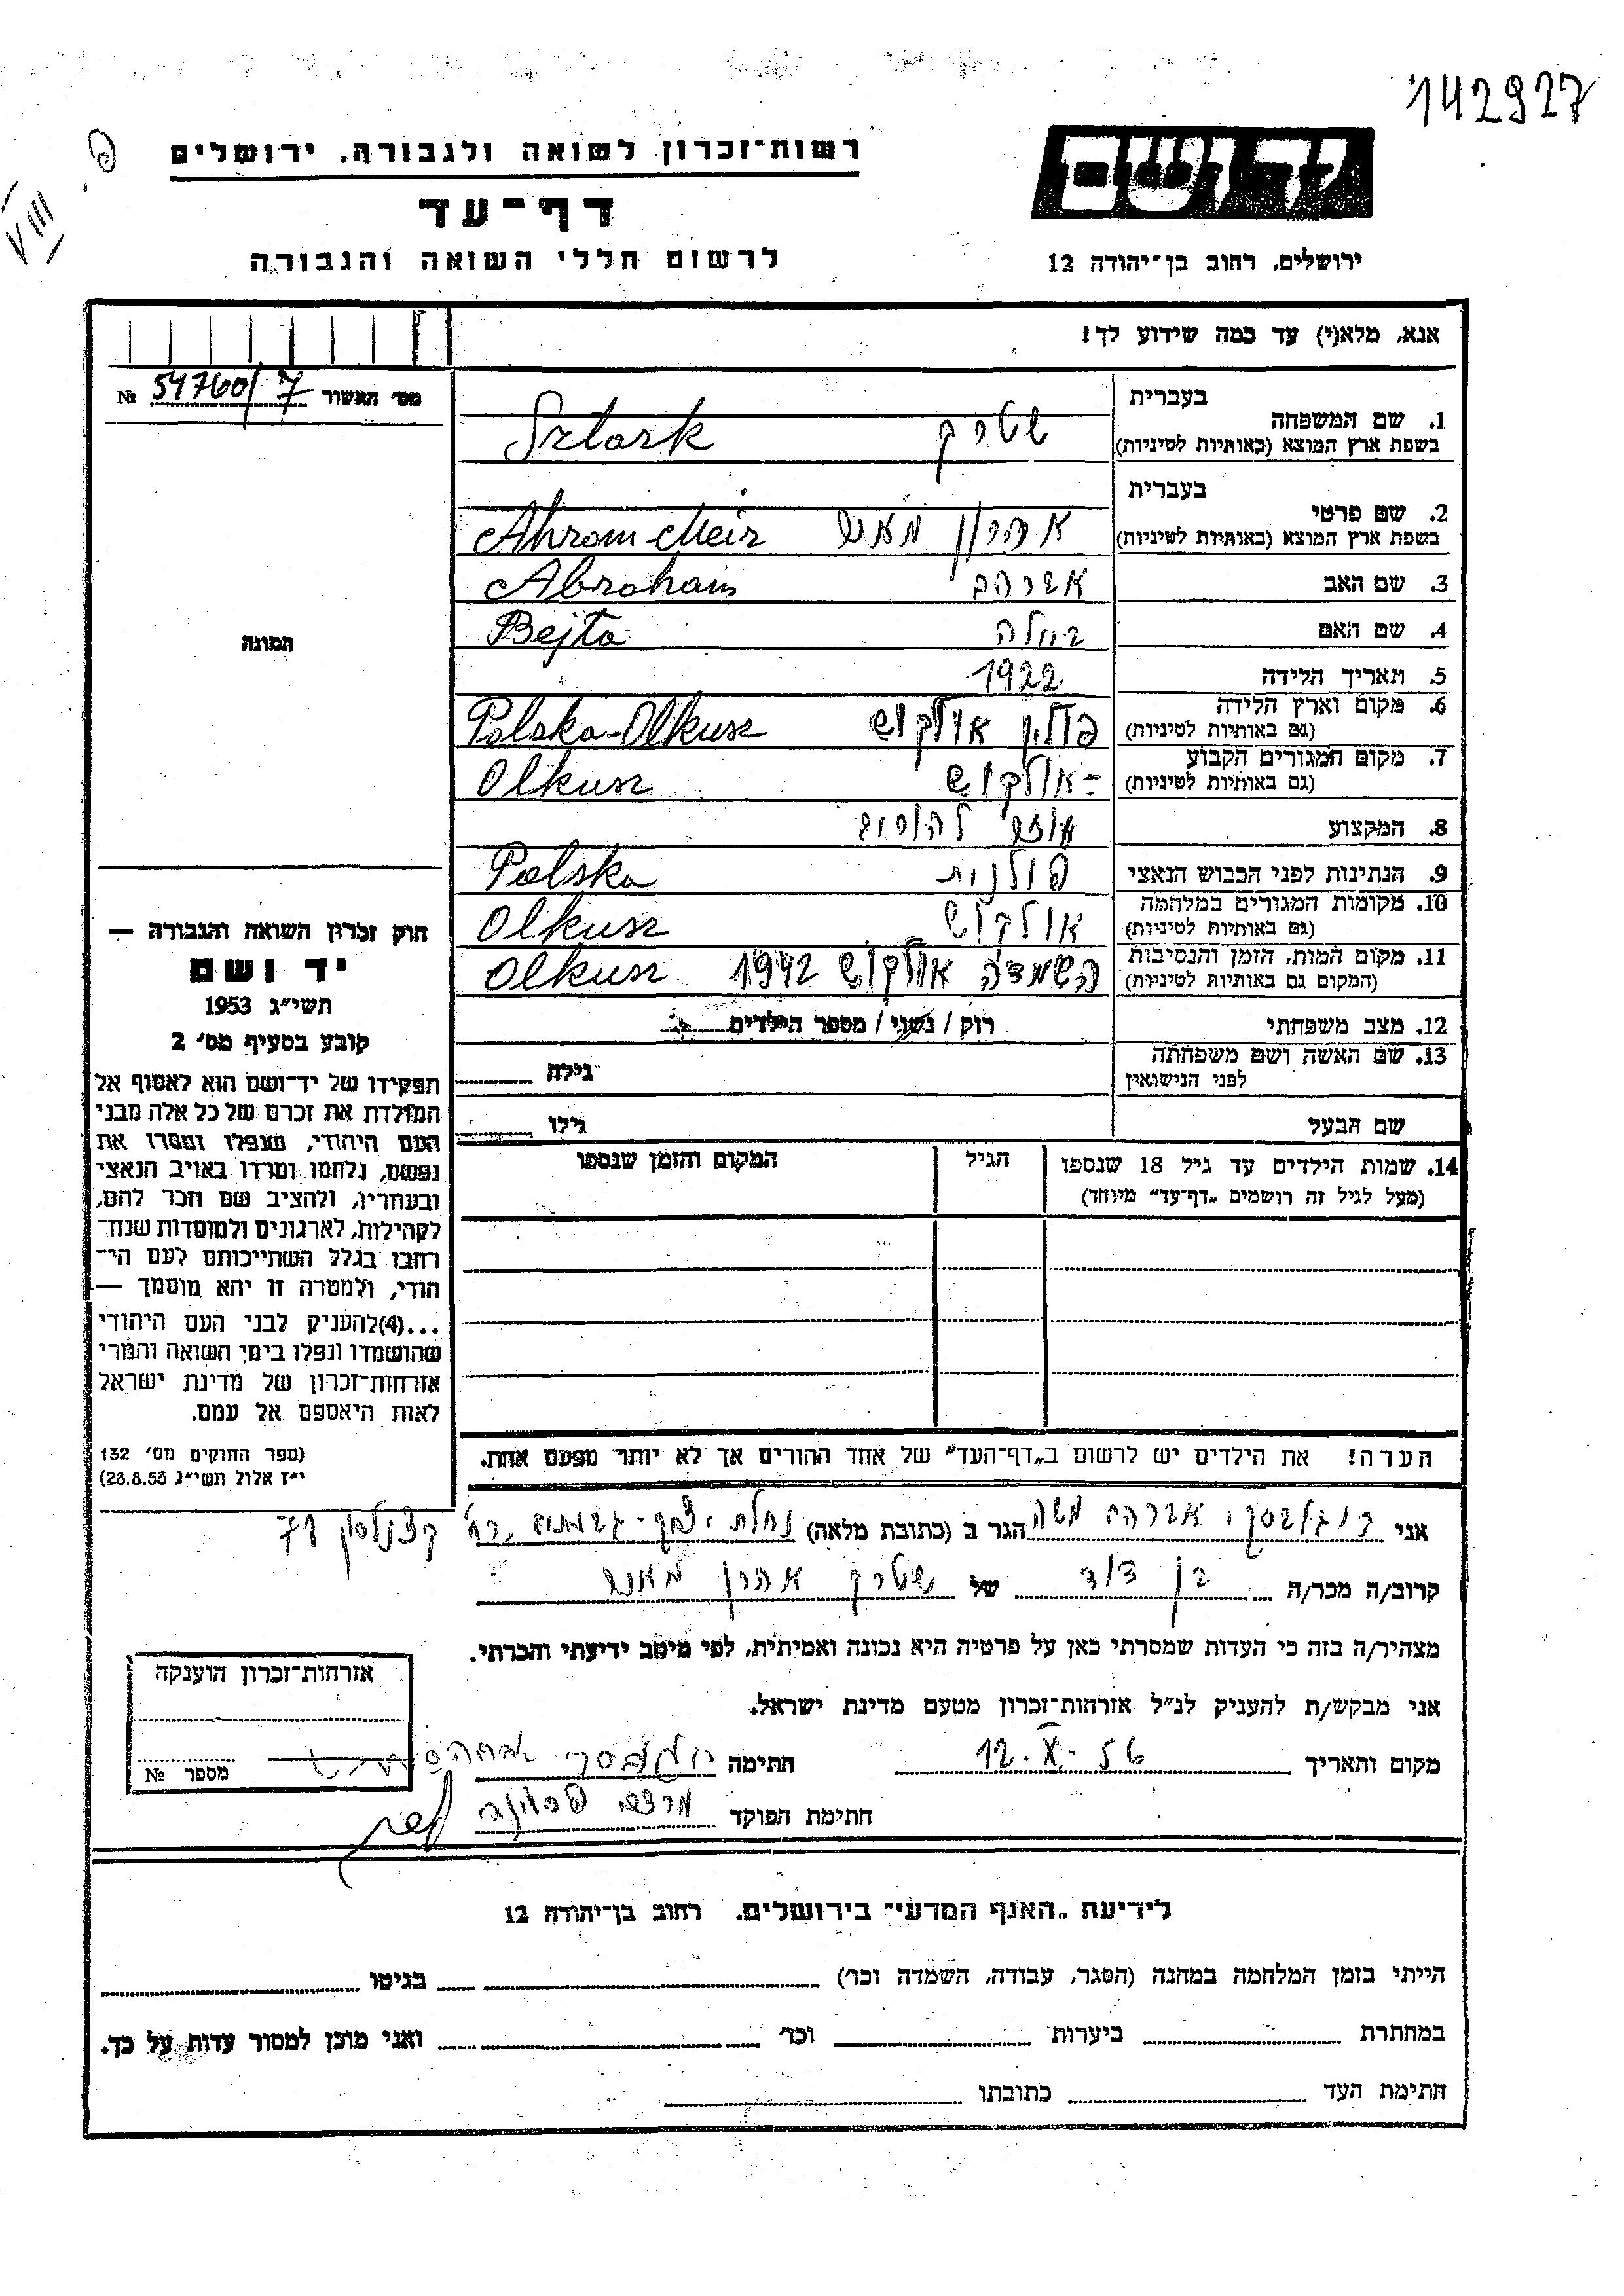 142927
VIII
יד ושם
רשות־זכרון לשואה ולגבורה, ירושלים
דף־עד
לרשום חללי השואה והגבורה
ירושלים, רחוב בן־יהודה 12
אנא, מלא(י) עד כמה שידוע לך!
מס' האשור 54760/7 №
בעברית
1. שם המשפחה
בשפת ארץ המוצא (באותיות לטיניות)
שטרק Sztark
בעברית
2. שם פרטי
בשפת ארץ המוצא (באותיות לטיניות)
אהרון מאיר Ahrom-Meir
3. שם האב אברהם Abraham
4. שם האם בילה Bejta
5. תאריך הלידה 1922
6. מקום וארץ הלידה
(גם באותיות לטיניות)
פולין אולקוש Polska-Olkusz
7. מקום המגורים הקבוע
(גם באותיות לטיניות)
אולקוש Olkusz
8. המקצוע
9. הנתינות לפני הכבוש הנאצי פולנית Polska
10. מקומות המגורים במלחמה
(גם באותיות לטיניות)
אולקוש Olkusz
11. מקום המות, הזמן והנסיבות
(המקום גם באותיות לטיניות)
השמדה אולקוש 1942 Olkusz
12. מצב משפחתי רוק / נשוי / מספר הילדים
13. שם האשה ושם משפחתה
לפני הנישואין
גילה
שם הבעל גילו
14. שמות הילדים עד גיל 18 שנספו
(מעל לגיל זה רושמים „דף־עד” מיוחד)
הגיל
המקום והזמן שנספו
תמונה
חוק זכרון השואה והגבורה —
יד ושם
תשי״ג 1953
קובע בסעיף מס' 2
תפקידו של יד־ושם הוא לאסוף אל
המולדת את זכרם של כל אלה מבני
העם היהודי, שנפלו ומסרו את
נפשם, נלחמו ומרדו באויב הנאצי
ובעוזריו, ולהציב שם וזכר להם,
לקהילות, לארגונים ולמוסדות שנח־
רבו בגלל השתייכותם לעם הי־
הודי, ולמטרה זו יהא מוסמך —
...(4)להעניק לבני העם היהודי
שהושמדו ונפלו בימי השואה והמרי
אזרחות־זכרון של מדינת ישראל
לאות היאספם אל עמם.
(ספר החוקים מס' 132
י״ז אלול תשי״ג 28.8.53)
הערה! את הילדים יש לרשום ב„דף־העד” של אחד ההורים אך לא יותר מפעם אחת.
אני אברהם משה הגר ב (כתובת מלאה) נחלת יצחק רח' קצנלסון 71
קרוב/ה מכר/ה בן דוד של שטרק אהרן מאיר
מצהיר/ה בזה כי העדות שמסרתי כאן על פרטיה היא נכונה ואמיתית, לפי מיטב ידיעתי והכרתי.
אני מבקש/ת להעניק לנ״ל אזרחות־זכרון מטעם מדינת ישראל.
מקום ותאריך 12.X.56 חתימה
חתימת הפוקד
אזרחות־זכרון הוענקה
מספר №
לידיעת „האגף המדעי” בירושלים, רחוב בן־יהודה 12
הייתי בזמן המלחמה במחנה (הסגר, עבודה, השמדה וכו') בגיטו
במחתרת ביערות וכו' ואני מוכן למסור עדות על כך.
חתימת העד כתובתו